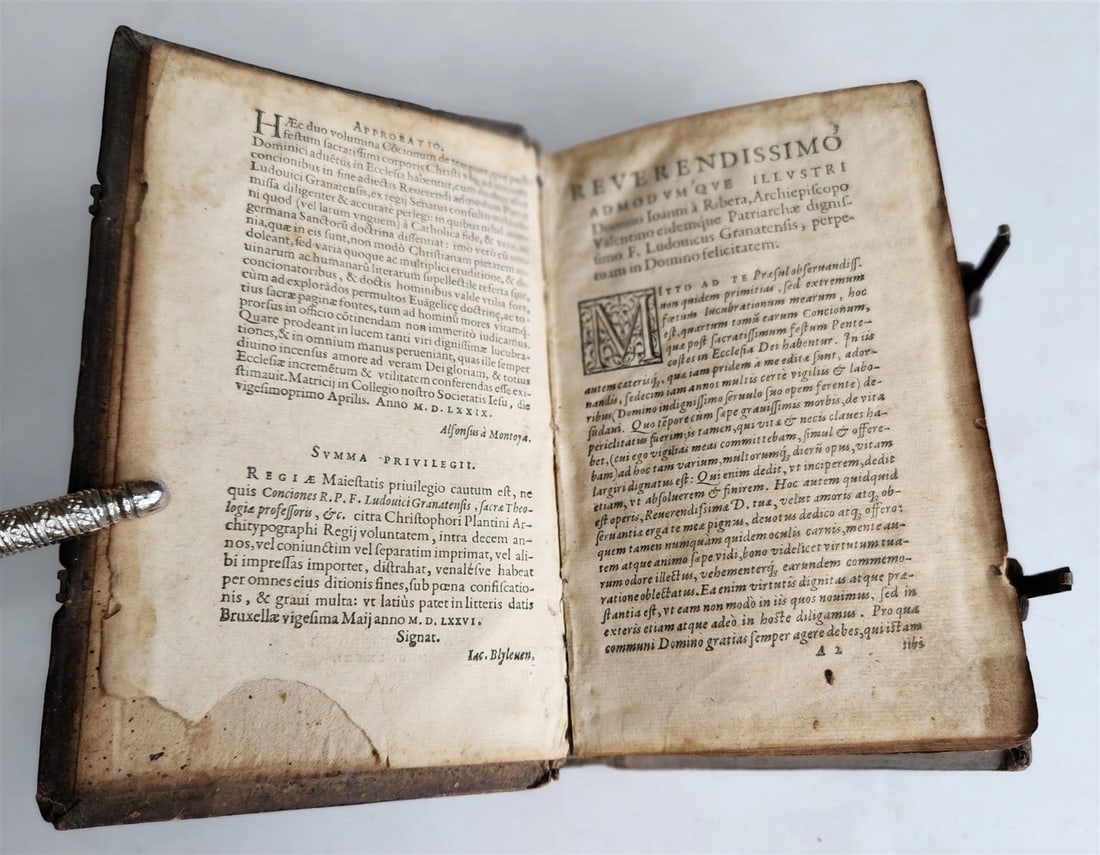 APPROBATIO.
HÆc duo volumina Cōcionum de tempore, quæ post
festum sacratissimi corporis Christi vsq; ad
Dominici aduētus in Ecclesia habentur, cum
concionibus in fine adiectis Reuerendi admodum Patris
Ludouici Granatensis, ex regij Senatus consulto mihi com-
missa diligenter & accuratè perlegi: in quibus nihil
ni quod (vel latum vnguem) à Catholica fide, & vera, ac
germana Sanctorū doctrina dissentiat: imò verò cū omnia
nia, quæ in eis sunt, non modò Christianam pietatem re-
doleant, sed varia quoque ac multiplici eruditione, & di-
uinarum ac humanarū literarum supellectile referta sunt,
concionatoribus, & doctis hominibus valde vtilia fore,
cùm ad explorādos permultos Euāgelicę doctrinę, ac to-
tius sacræ paginæ fontes, tum ad hominū mores vitamq́.
prorsus in officio cōtinendam non immeritò iudicamus.
Quare prodeant in lucem tanti viri dignissimæ lucubra-
tiones, & in omnium manus perueniant, quas ille semper
diuino incensus amore ad veram Dei gloriam, & totius
Ecclesiæ incremētum & vtilitatem conferendas esse exi-
stimauit. Matricij in Collegio nostro Societatis Iesu, die
vigesimoprimo Aprilis. Anno M. D. LXXIX.
Alfonsus à Montoya.
SVMMA PRIVILEGII.
REGIÆ Maiestatis priuilegio cautum est, ne
quis Conciones R. P. F. Ludouici Granatensis, sacræ Theo-
logiæ professoris, &c. citra Christophori Plantini Ar-
chitypographi Regij voluntatem, intra decem an-
nos, vel coniunctim vel separatim imprimat, vel ali-
bi impressas importet, distrahat, venalésve habeat
per omnes eius ditionis fines, sub pœna confiscatio-
nis, & graui multa: vt latiùs patet in litteris datis
Bruxellæ vigesima Maij anno M. D. LXXVI.
Signat.
Iac. Blyleuen,
3
REVERENDISSIMO
ADMODVM'QVE ILLVSTRI
Domino Ioanni à Ribera, Archiepiscopo
Valentino eidemque Patriarchæ dignis-
simo F. Ludouicus Granatensis, perpe-
tuam in Domino felicitatem.
MITTO AD TE Præsul obseruandiss.
non quidem primitias, sed extremum
fœtum lucubrationum mearum, hoc
est, quartum tomū earum Concionum,
quæ post sacratissimum festum Pente-
costes in Ecclesia Dei habentur. In iis
autem cæterisq́, quæ iam pridem à me editæ sunt, ador-
nandis, sedecim iam annos multis certè vigiliis & labo-
ribus (Domino indignissimo seruulo suo opem ferente) de-
sudaui. Quo tēpore cum sæpe grauissimis morbis, de vita
periclitatus fuerim; is tamen, qui vitæ & necis claues ha-
bet, (cui ego vigilias meas committebam, simul & offere-
bam) ad hoc tam varium, multorumq́, dierū opus, vitam
largiri dignatus est: Qui enim dedit, vt inciperem, dedit
etiam, vt absoluerem & finirem. Hoc autem quidquid
est operis, Reuerendissimæ D. tuæ, velut amoris atq, ob-
seruantiæ erga te meæ pignus, deuotus dedico atq, offero:
quem tamen numquam quidem oculis carnis, mente au-
tem atque animo sæpe vidi, bono videlicet virtutum tua-
rum odore illectus, vehementerq́, earundem commemo-
ratione oblectatus. Ea enim virtutis dignitas atque præ-
stantia est, vt eam non modò in iis quos nouimus, sed in
exteris etiam atque adeò in hoste diligamus. Pro qua
communi Domino gratias semper agere debes, qui istam
A 2 tibi